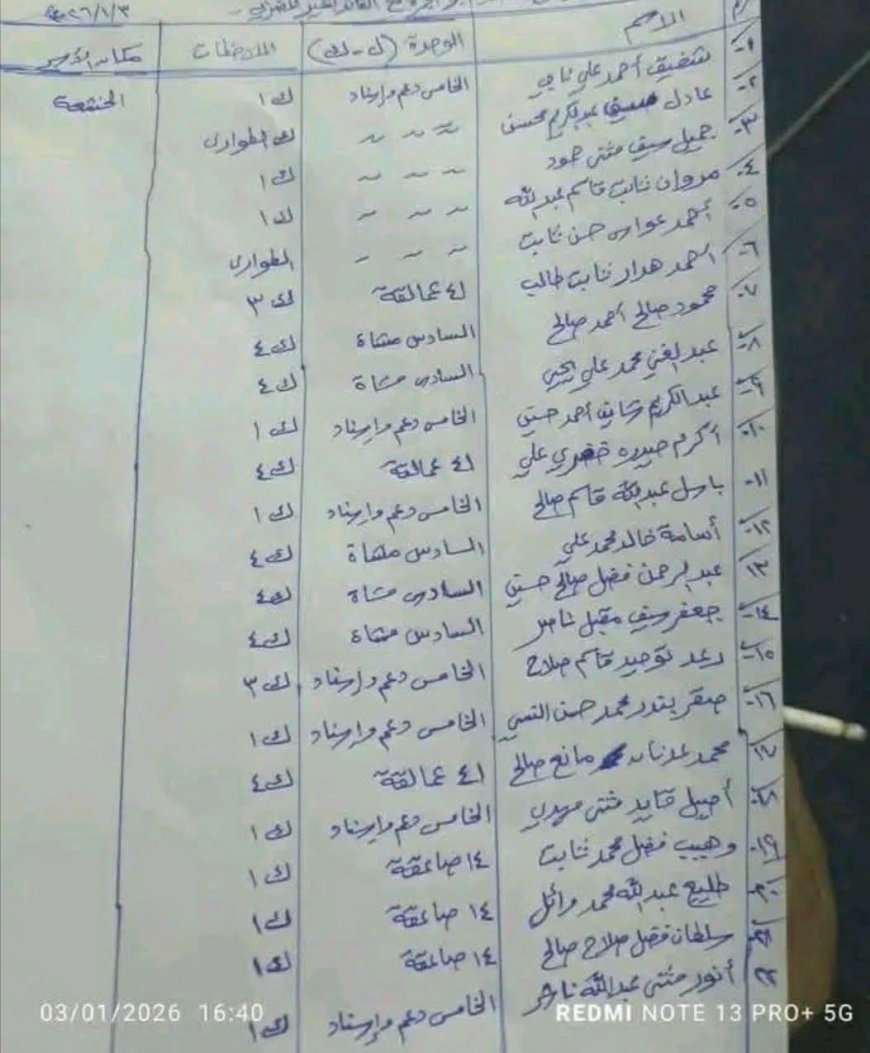 ٢٠٢٦/١/٣
م الاسم الوحدة (ل-ك) الملاحظات مكان الأسر
١- شفيق أحمد علي ناجي الخامس دعم وإسناد ك ١ الخشعة
٢- عادل عبدالكريم محسن ~ ~ ~ ك الطوارئ
٣- جميل سيف مثنى حمود ~ ~ ~ ك ١
٤- مروان ثابت قاسم عبدالله ~ ~ ~ ك ١
٥- أحمد عواس حسن ثابت ~ ~ ~ الطوارئ
٦- أحمد هدار ثابت طالب ٤١ عمالقة ك ٣
٧- محمود صالح أحمد صالح السادس مشاة ك ٤
٨- عبدالغني محمد علي يحيى السادس مشاة ك ٤
٩- عبدالكريم شايف أحمد حسين الخامس دعم وإسناد ك ١
١٠- أكرم حيدره خضري علي ٤١ عمالقة ك ٤
١١- باسل عبدالله قاسم صالح الخامس دعم وإسناد ك ١
١٢- أسامة خالد محمد علي السادس مشاة ك ٤
١٣- عبدالرحمن فضل صالح حسين السادس مشاة ك ٤
١٤- جعفر سيف مقبل ناصر السادس مشاة ك ٤
١٥- رعد توحيد قاسم صلاح الخامس دعم وإسناد ك ٣
١٦- صقر بندر محمد حسن الخامس دعم وإسناد ك ١
١٧- محمد عدنان مانع صالح ٤١ عمالقة ك ٤
١٨- أصيل قايد مثنى مهدي الخامس دعم وإسناد ك ١
١٩- وهيب فضل محمد ثابت ١٤ صاعقة ك ١
٢٠- طليع عبدالله محمد وائل ١٤ صاعقة ك ١
٢١- سلطان فضل صلاح صالح ١٤ صاعقة ك ١
٢٢- أنور مثنى عبدالله ناصر الخامس دعم وإسناد ك ١
03/01/2026 16:40 REDMI NOTE 13 PRO+ 5G